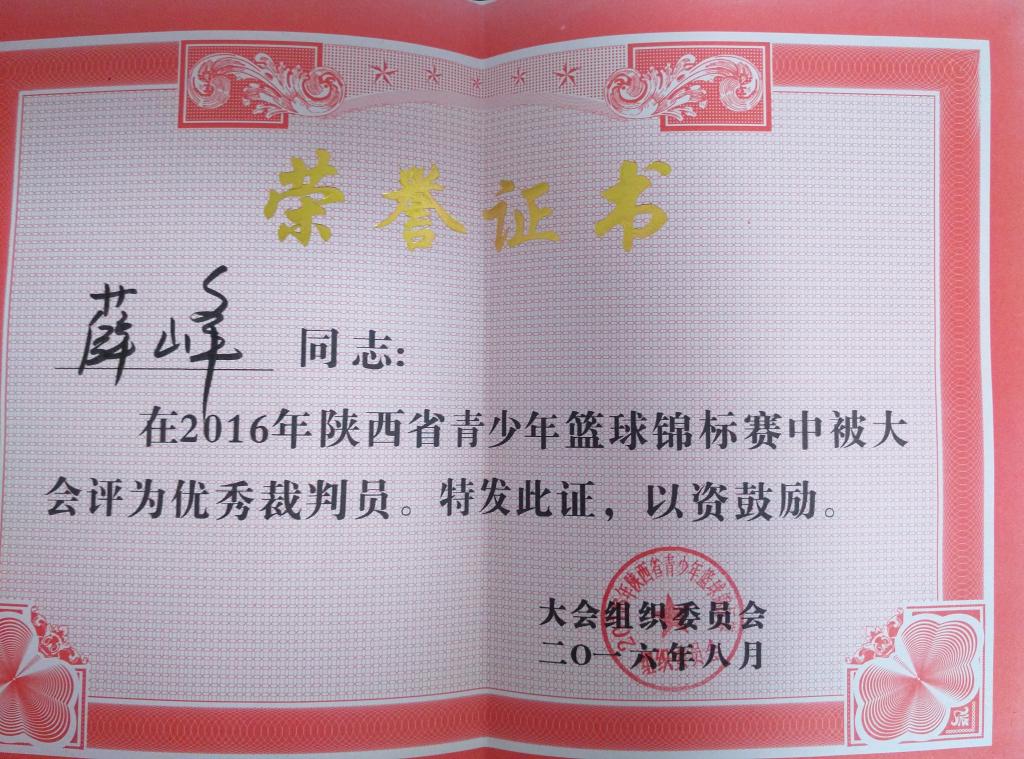 荣誉证书
薛峰 同志:
在2016年陕西省青少年篮球锦标赛中被大
会评为优秀裁判员。特发此证，以资鼓励。
大会组织委员会
二〇一六年八月
年陕西省青少年篮球
组织委员会